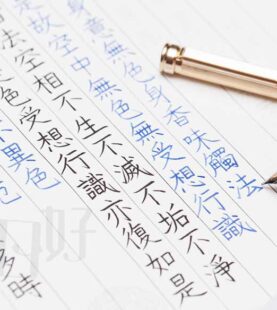 身意無色身香味觸法
故空中無色無受想行識
法空相不生不滅不垢不淨
色受想行識亦復如是
異色
多時
好